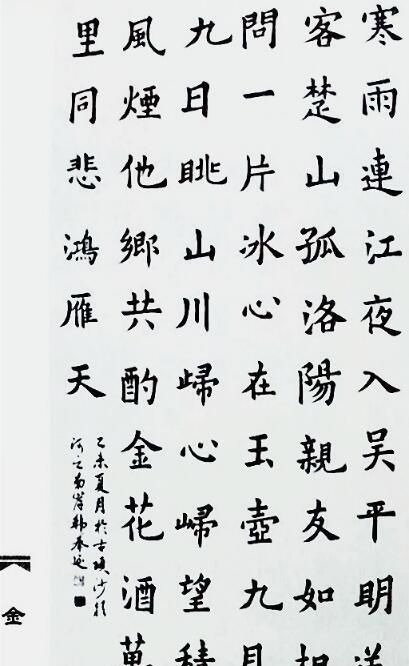 寒雨連江夜入吳平明送
客楚山孤洛陽親友如相
問一片冰心在玉壺九月
九日眺山川歸心歸望積
風煙他鄉共酌金花酒萬
里同悲鴻雁天
乙未夏月於古項沙
河之南岸韩春
金